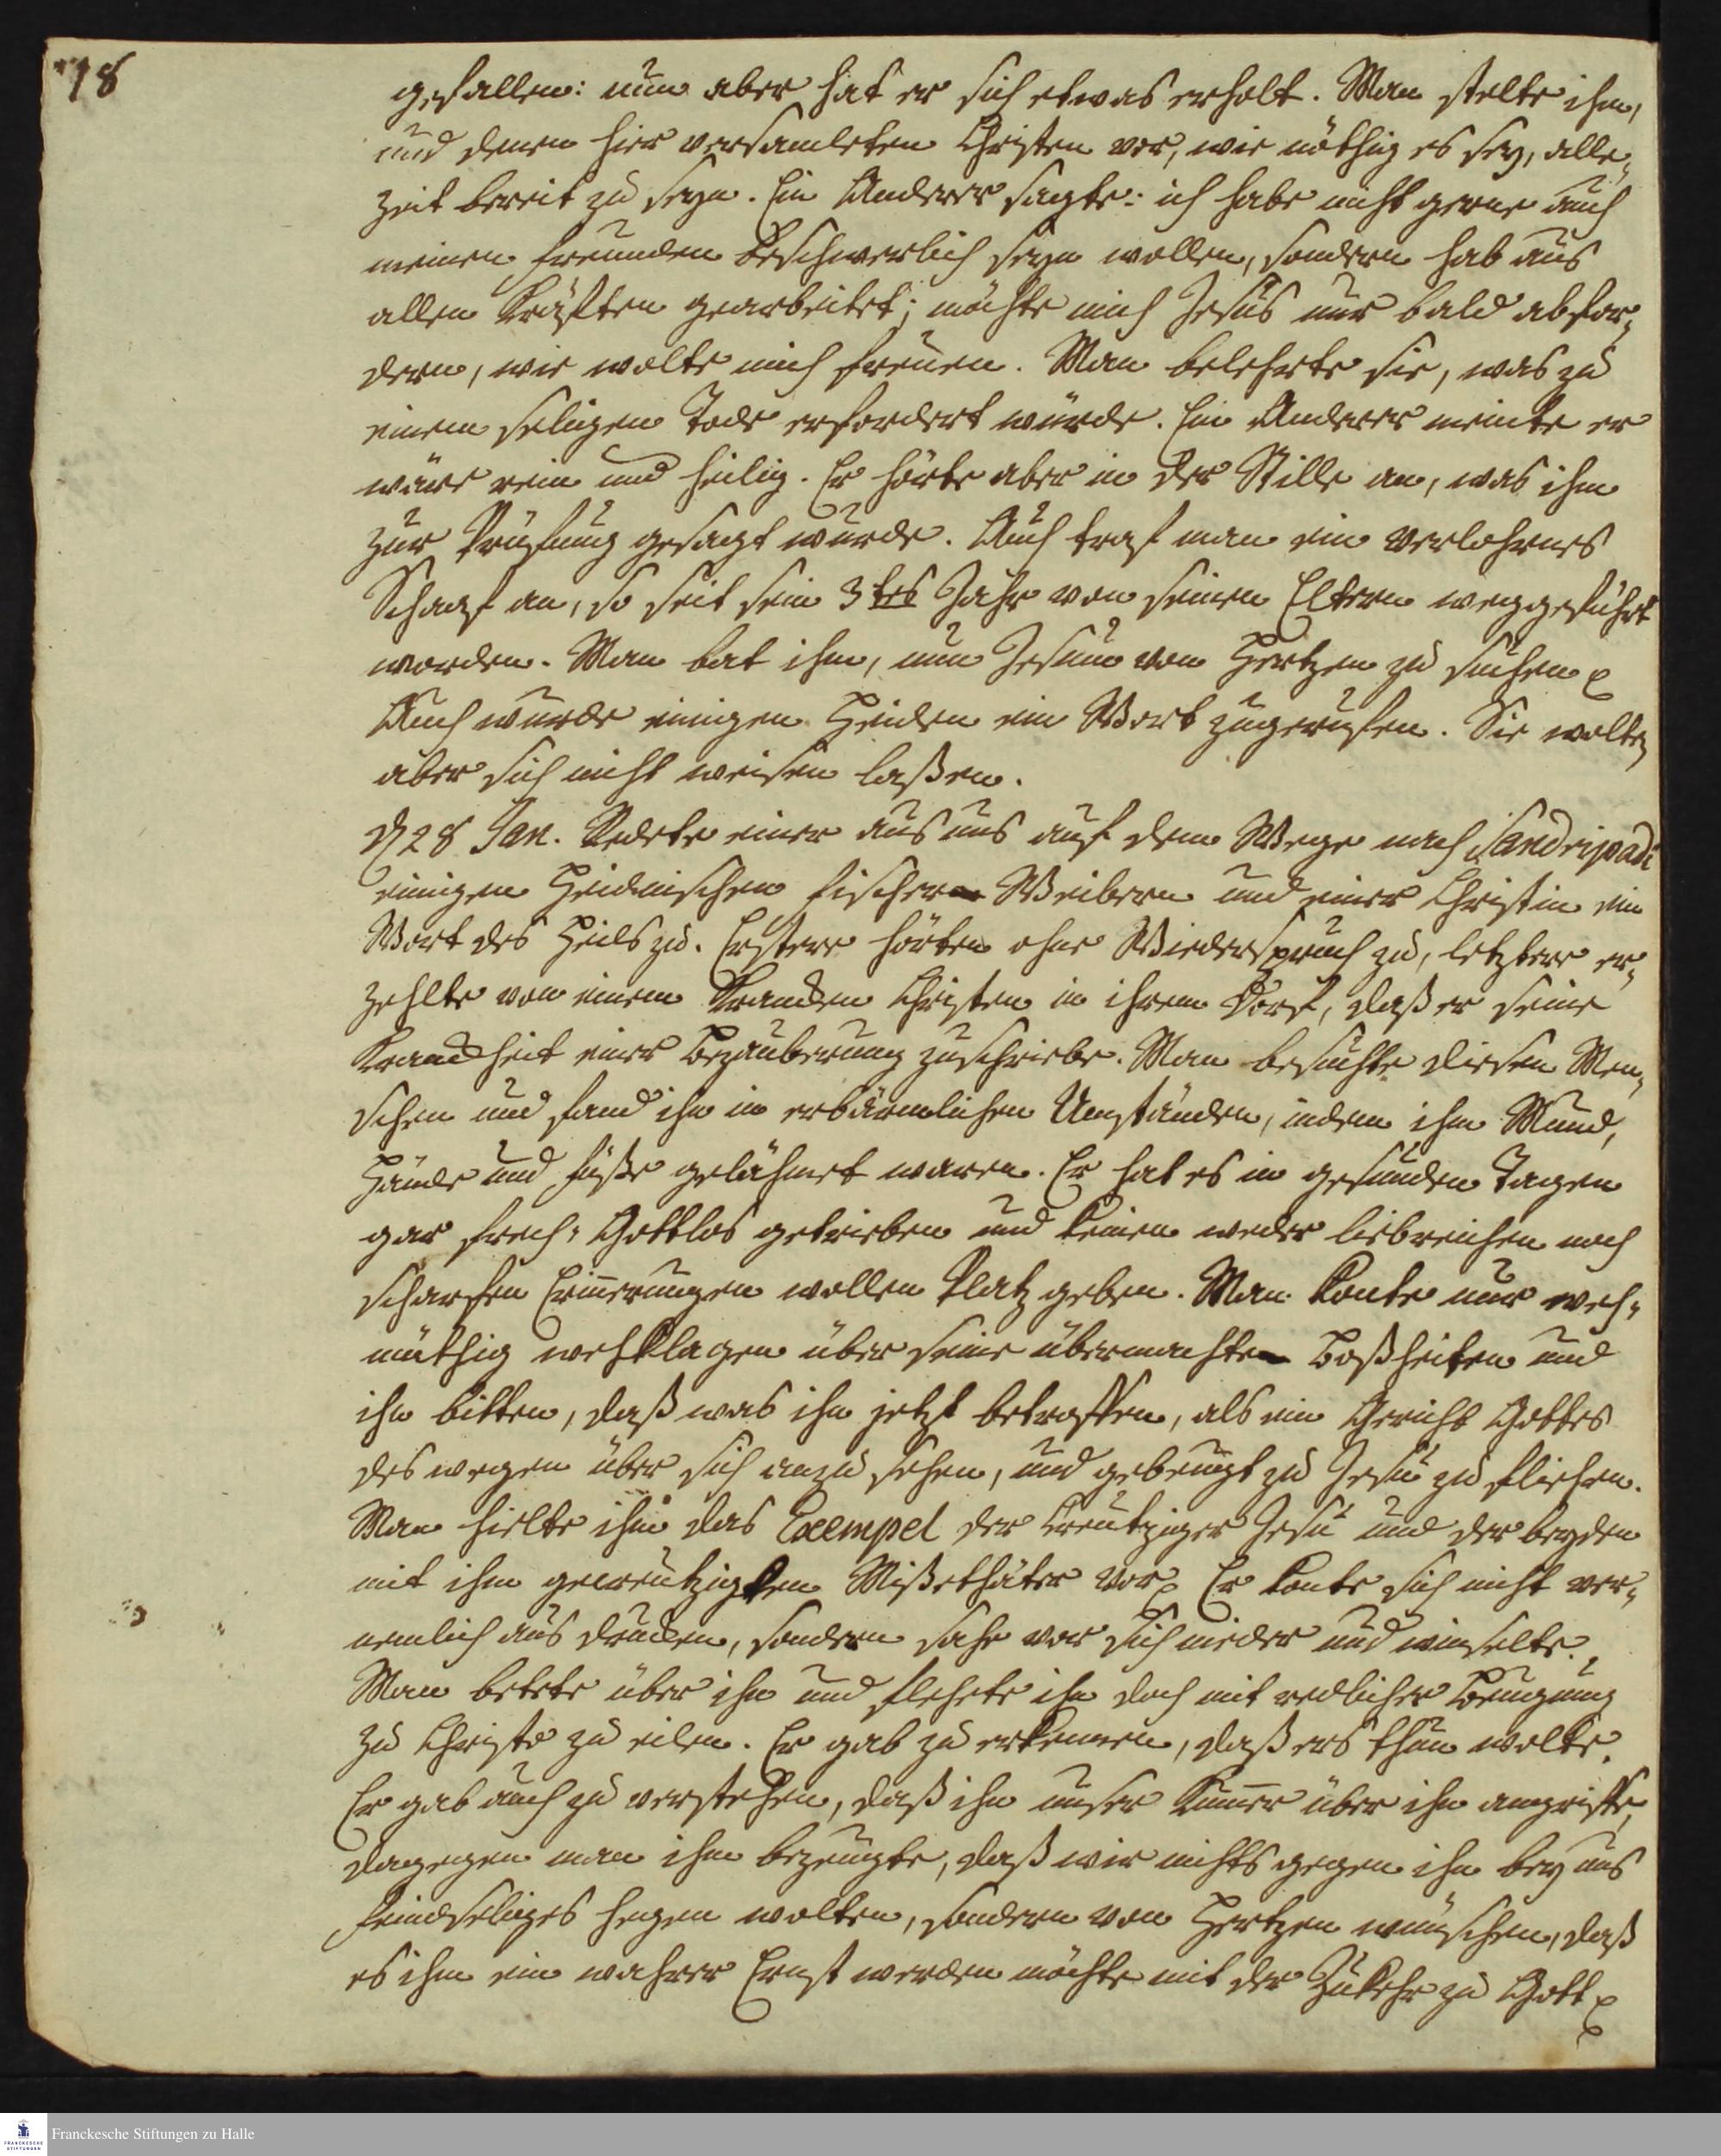 18
gefallen: nun aber hat er sich etwas erholt. Man stelte ihm,
und denen hier versamleten Christen vor, wie nöthig es sey, alle„
zeit bereit zu seyn. Ein Anderer sagte: ich habe nicht gerne auch
meinen Freunden beschwerlich seyn wollen, sondern hab aus
allen Kräften gearbeitet; möchte mich Jesus nur bald abfor„
dern, wie wolte mich freuen. Man belehrte sie, was zu
einem seligen Tode erfordert würde. Ein Anderer meinte er
wäre rein und heilig. Er hörte aber in der Stille an, was ihm
zur Prüfung gesagt wurde. Auch traf man ein verlohrnes
Schaaf an, so seit sein 3tes Jahr von seinen Eltern weggeführt
worden. Man bat ihm, nun Jesum von Hertzen zu suchen
Auch wurde einigen Heiden ein Wort zugerufen. Sie wolten
aber sich nicht weisen laßen.
d 28 Jan. Redete einer aus uns auf dem Wege nach Sandirapadi
einigen Heidnischen Fischer Weibern und einer Christin ein
Wort des Heils zu. Erstere hörten ohne Wiederspruch zu, letztere er„
zehlte von einem Krancken Christen in ihrem Dorf, daß er seine
Kranckheit einer Bezauberung zuschriebe. Man besuchte diesen Men„
schen und fand ihn in erbärmlichen Umständen, indem ihm Mund,
Hände und Füße gelähmet waren. Er hat es in gesunden Tagen
gar frech, Gottlos getrieben und keinen weder liebreichen noch
scharfen Erinnerungen wollen Platz geben. Man konte nur weh„
müthig wehklagen über seine übermachte Boßheiten und
ihn bitten, daß was ihn jetzt betroffen, als ein Gericht Gottes
des wegen über sich anzu sehen, und gebeugt zu Jesu zu fliehen.
Man hielte ihm das Exempel der Creutziger Jesu und der beyden
mit ihm gecreutzigten Mißethäter vor Er konte sich nicht ver„
nemlich aus drucken, sondern sahe vor sich nieder und winselte.
Man betete über ihn und flehete ihn doch mit redlicher Beugung
zu Christo zu eilen. Er gab zu erkennen, daß ers thun wolte.
Er gab auch zu verstehen, daß ihn unser Kummer über ihn angriffe,
dagegen man ihm bezeugte, daß wir nichts gegen ihn bey uns
feindseliges hegen wolten, sondern von Hertzen wünschen, daß
es ihm ein wahrer Ernst werden möchte mit der Zukehr zu Gott
Franckesche Stiftungen zu Halle